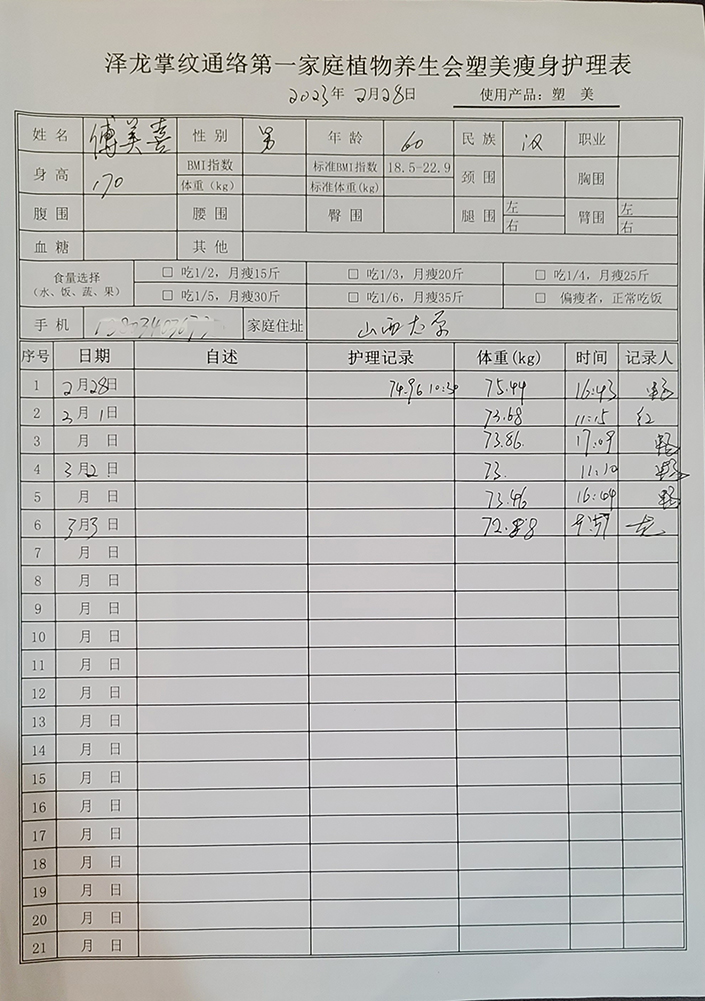 泽龙掌纹通络第一家庭植物养生会塑美瘦身护理表
2023年 2月28日 使用产品：塑 美
姓 名 傅美喜 性 别 男 年 龄 60 民 族 汉 职业
身 高 170 BMI指数 标准BMI指数 18.5-22.9 颈 围 胸围
体重（kg） 标准体重(kg)
腹 围 腰 围 臀 围 腿 围 左 右 臂 围 左 右
血 糖 其 他
食量选择（水、饭、蔬、果） □ 吃1/2，月瘦15斤 □ 吃1/3，月瘦20斤 □ 吃1/4，月瘦25斤
□ 吃1/5，月瘦30斤 □ 吃1/6，月瘦35斤 □ 偏瘦者，正常吃饭
手 机 家庭住址 山西太原
序号 日期 自述 护理记录 体重(kg) 时间 记录人
1 2月28日 74.96 10:30 75.44 16:43
2 3月1日 73.68 11:15 红
3 月 日 73.86 17:09
4 3月2日 73. 11:10
5 月 日 73.46 16:44
6 3月3日
7 月 日
8 月 日
9 月 日
10 月 日
11 月 日
12 月 日
13 月 日
14 月 日
15 月 日
16 月 日
17 月 日
18 月 日
19 月 日
20 月 日
21 月 日